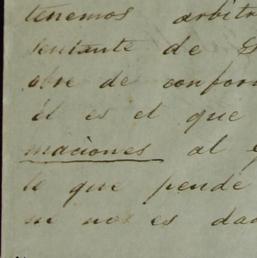 tenemos arbitr
sentante de S
obre de confor
él es el que
maciones al e
le que pende
ni nos es dad